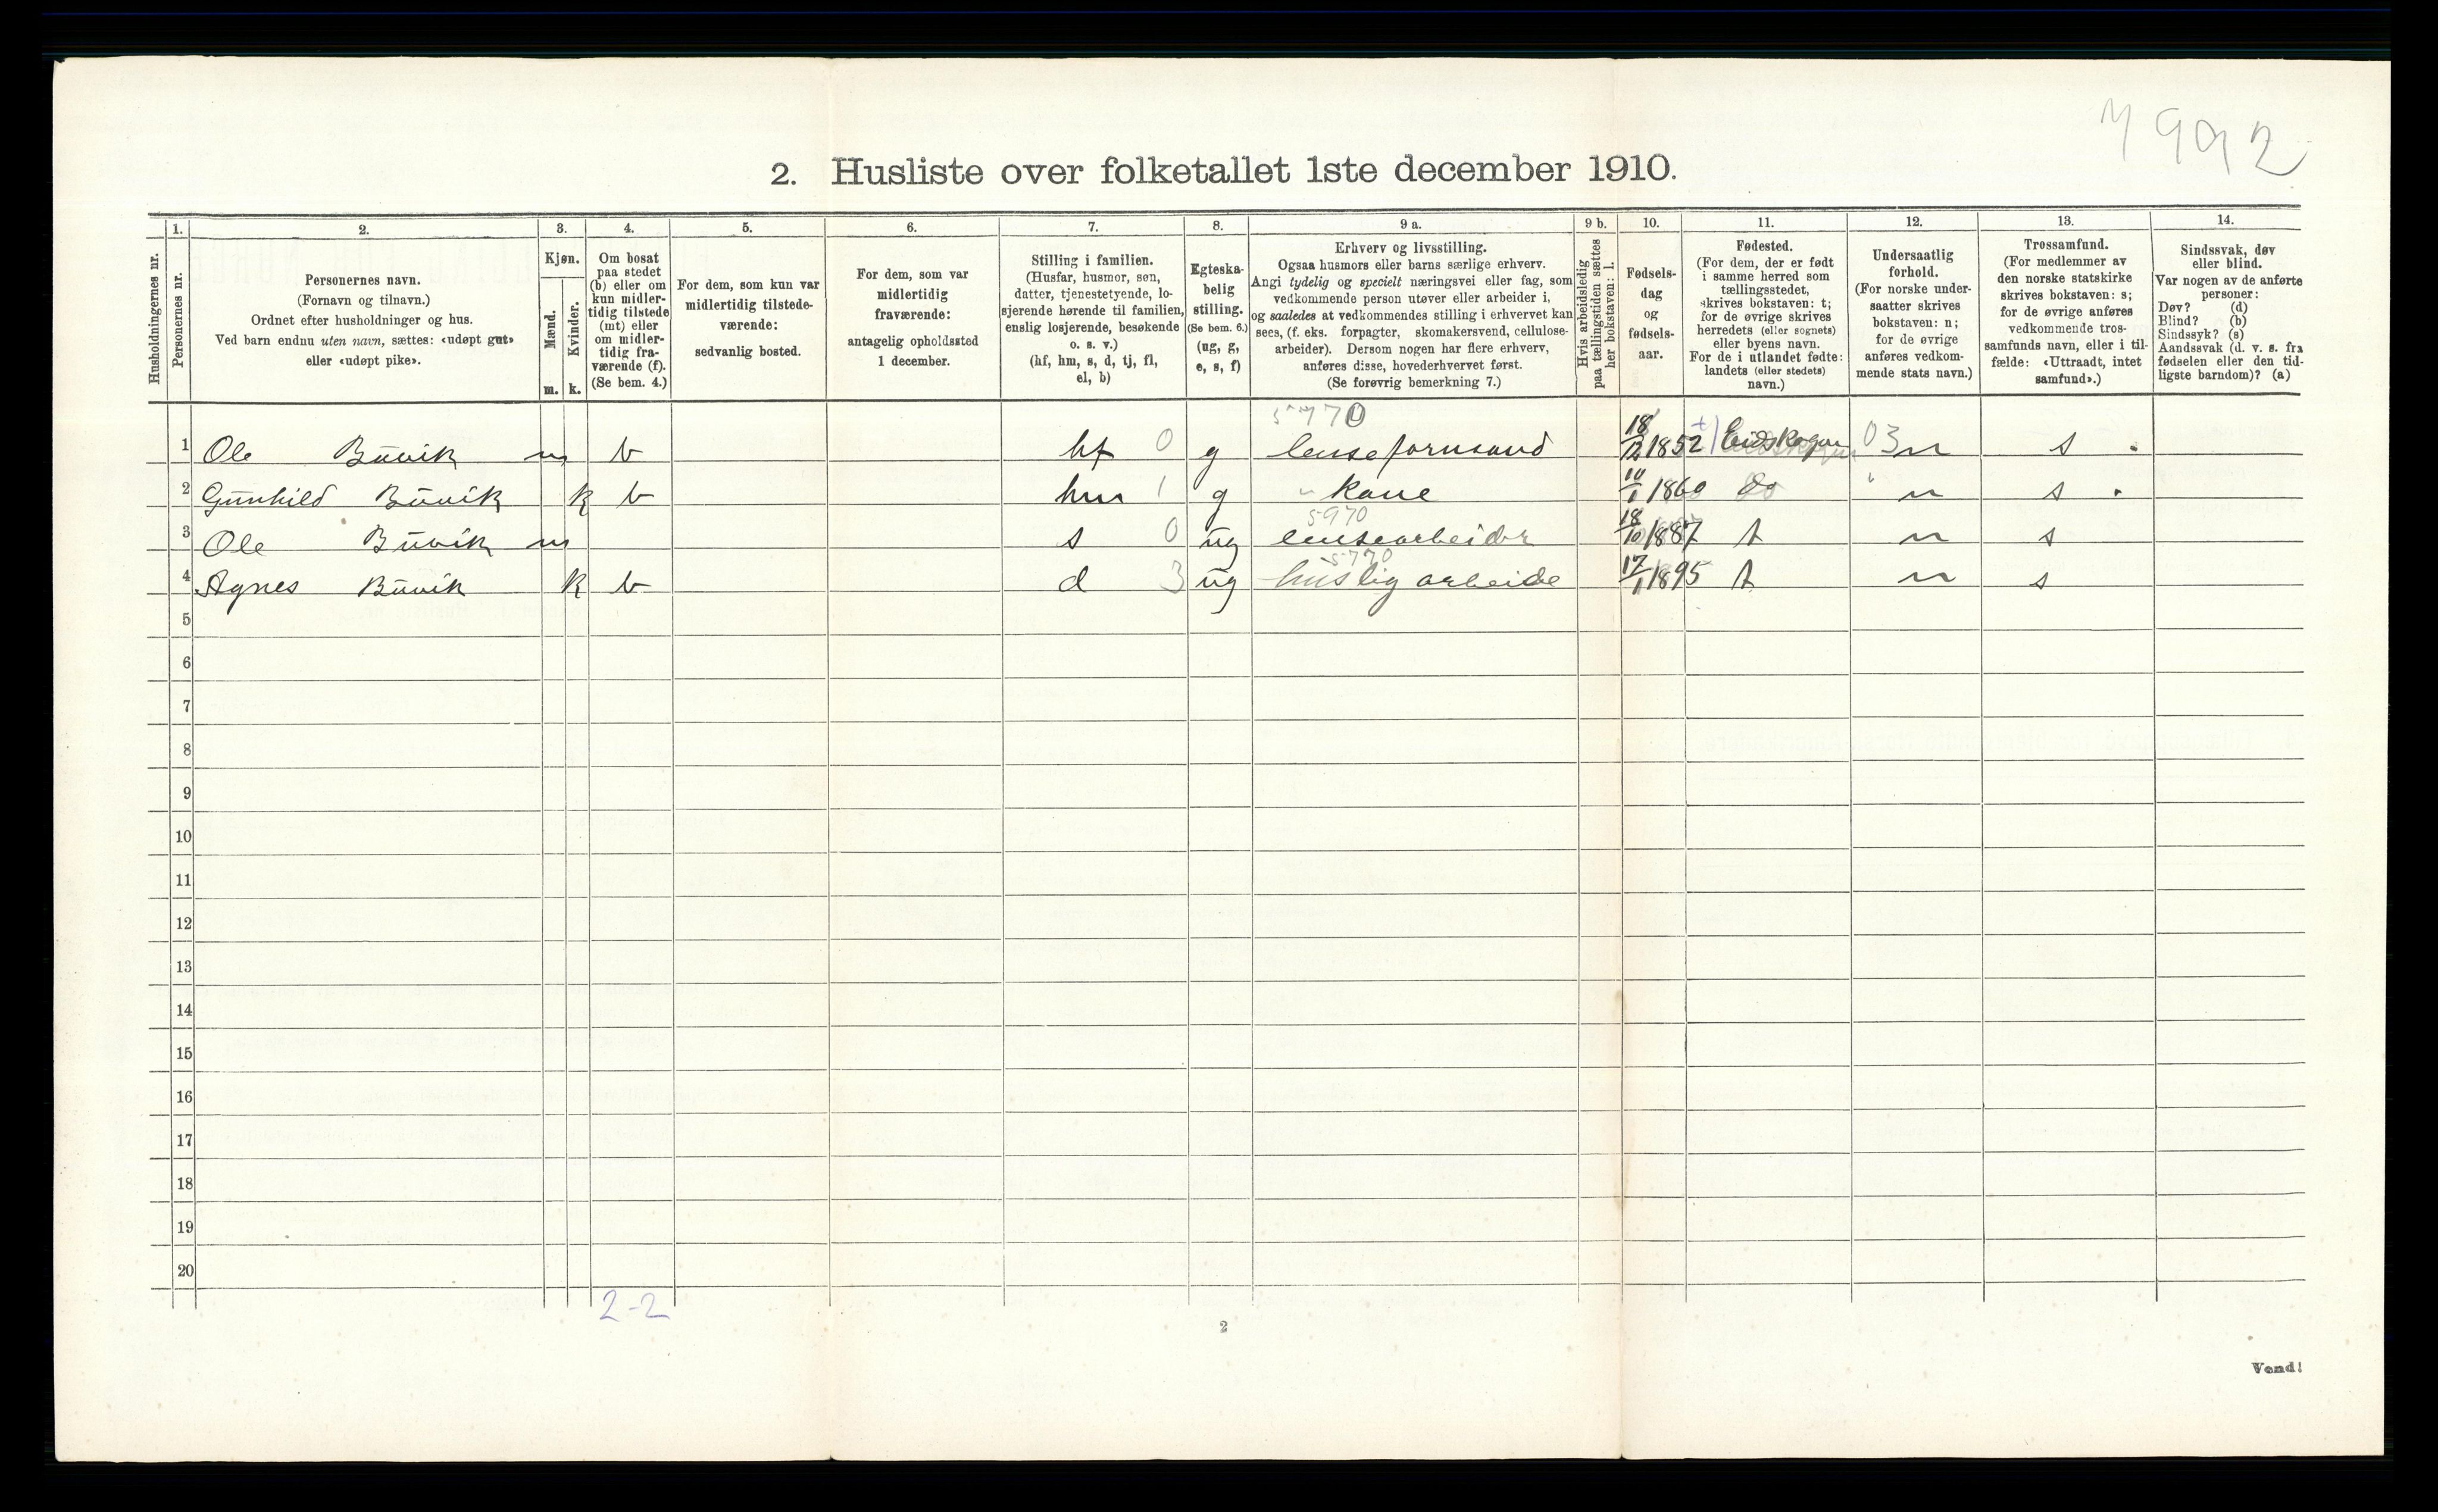 2. Husliste over folketallet 1ste december 1910.
Husholdningernes nr.
1.
Personernes nr.
2.
Personernes navn.
(Fornavn og tilnavn.)
Ordnet efter husholdninger og hus.
Ved barn endnu uten navn, sættes: «udøpt gut»
eller «udøpt pike».
3.
Kjøn.
Mænd.
m.
Kvinder.
k.
4.
Om bosat
paa stedet
(b) eller om
kun midler-
tidig tilstede
(mt) eller
om midler-
tidig fra-
værende (f).
(Se bem. 4.)
5.
For dem, som kun var
midlertidig tilstede-
værende:
sedvanlig bosted.
6.
For dem, som var
midlertidig
fraværende:
antagelig opholdssted
1 december.
7.
Stilling i familien.
(Husfar, husmor, søn,
datter, tjenestetyende, lo-
sjerende hørende til familien,
enslig losjerende, besøkende
o. s. v.)
(hf, hm, s, d, tj, fl,
el, b)
8.
Egteska-
belig
stilling.
(Se bem. 6.)
(ug, g,
e, s, f)
9 a.
Erhverv og livsstilling.
Ogsaa husmors eller barns særlige erhverv.
Angi tydelig og specielt næringsvei eller fag, som
vedkommende person utøver eller arbeider i,
og saaledes at vedkommendes stilling i erhvervet kan
sees, (f. eks. forpagter, skomakersvend, cellulose-
arbeider). Dersom nogen har flere erhverv,
anføres disse, hovederhvervet først.
(Se forøvrig bemerkning 7.)
9 b.
Hvis arbeidsledig
paa tællingstiden sættes
her bokstaven: l.
10.
Fødsels-
dag
og
fødsels-
aar.
11.
Fødested.
(For dem, der er født
i samme herred som
tællingsstedet,
skrives bokstaven: t;
for de øvrige skrives
herredets (eller sognets)
eller byens navn.
For de i utlandet fødte:
landets (eller stedets)
navn.)
12.
Undersaatlig
forhold.
(For norske under-
saatter skrives
bokstaven: n;
for de øvrige
anføres vedkom-
mende stats navn.)
13.
Trossamfund.
(For medlemmer av
den norske statskirke
skrives bokstaven: s;
for de øvrige anføres
vedkommende tros-
samfunds navn, eller i til-
fælde: «Uttraadt, intet
samfund».)
14.
Sindssvak, døv
eller blind.
Var nogen av de anførte
personer:
Døv? (d)
Blind? (b)
Sindssyk? (s)
Aandssvak (d. v. s. fra
fødselen eller den tid-
ligste barndom)? (a)
1 Ole Buvik m b hf 0 g lenseformand 18/12 1852 Eidskogen 03 n s
2 Gunhild Buvik k b hm 1 g kone 1860 do n s
5970
3 Ole Buvik m s 0 ug lensearbeider 18/10 1887 t n s
5770
4 Agnes Buvik k b d 3 ug huslig arbeide 17/1 1895 t n s
5
6
7
8
9
10
11
12
13
14
15
16
17
18
19
20
2-2
2
Vend!